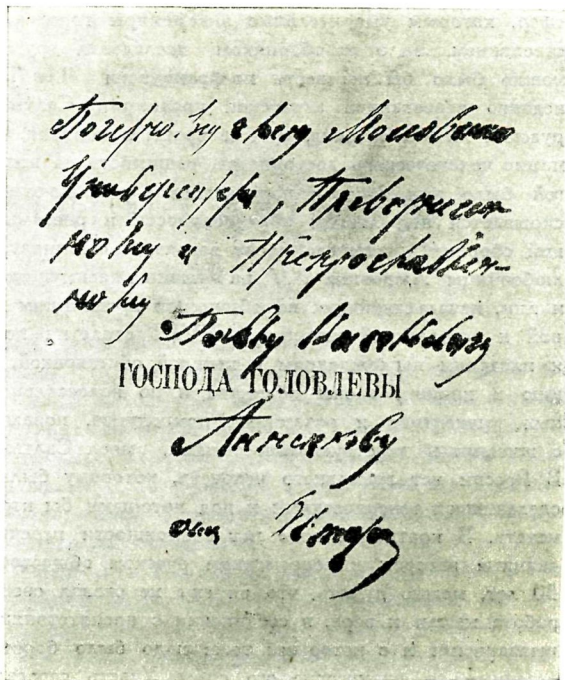 Почетному члену Московскаго
Университета, Превознесен-
ному и Препрославлен-
ному
Павлу Васильевичу
ГОСПОДА ГОЛОВЛЕВЫ
Анненкову
отъ Автора